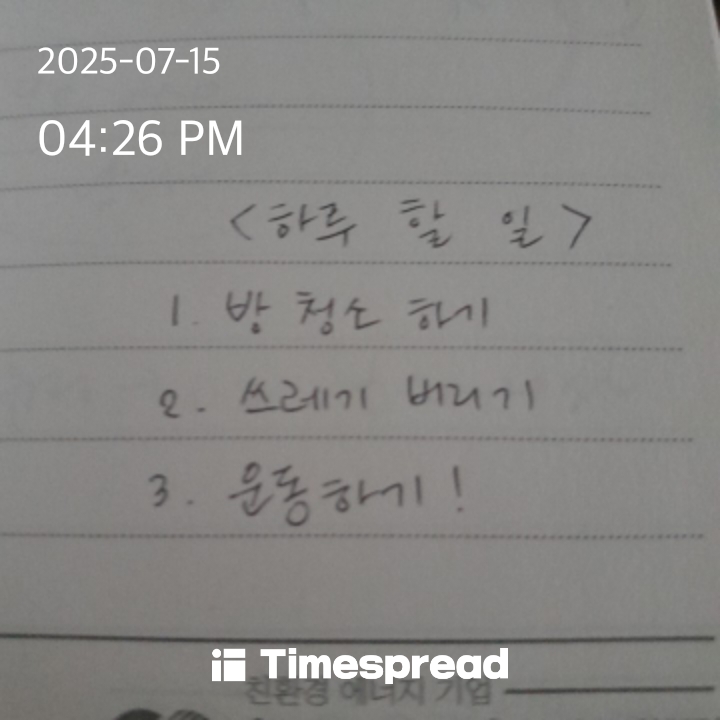 2025-07-15
04:26 PM
<하루 할 일>
1. 방 청소 하기
2. 쓰레기 버리기
3. 운동하기!
Timespread
친환경 에너지 기업